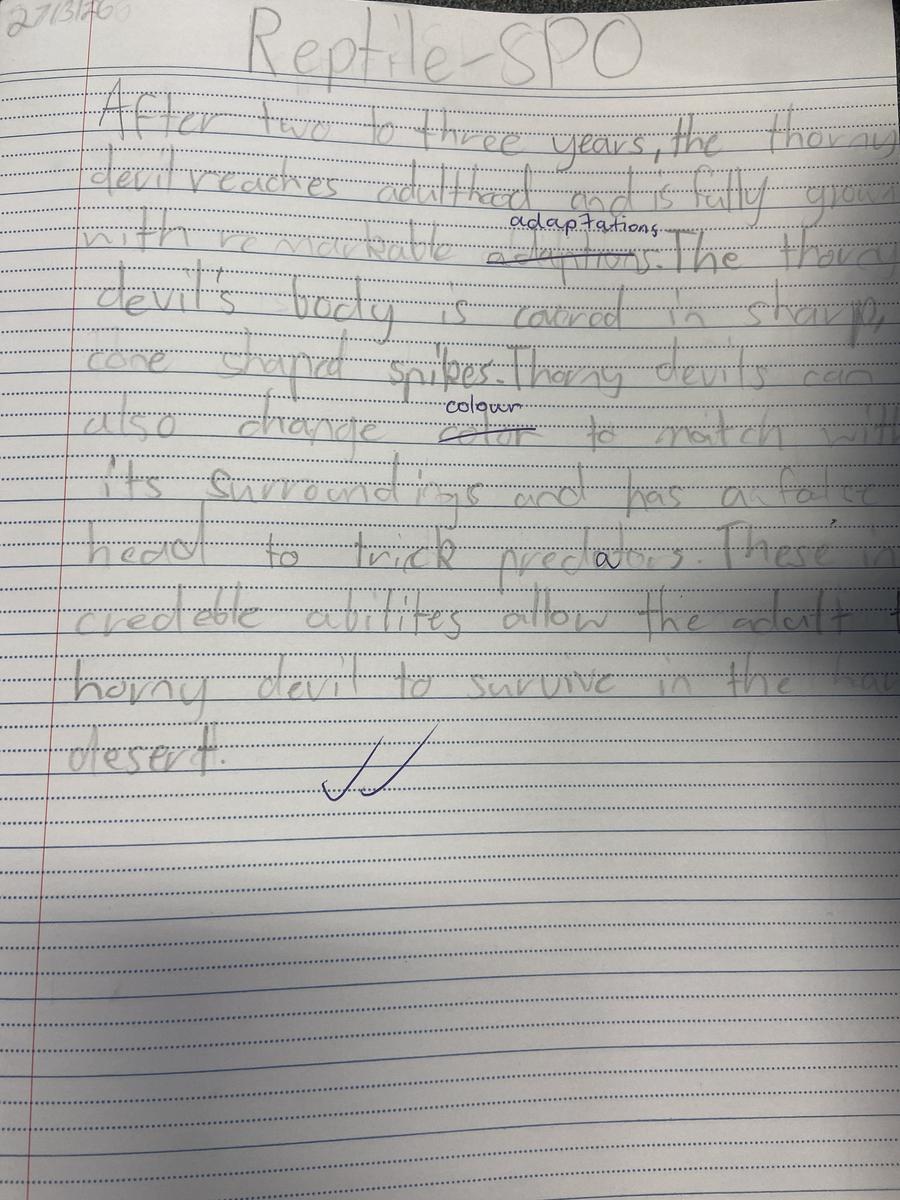 27/3/26
Reptile-SPO
After two to three years, the thorny
devil reaches adulthood and is fully grown
adaptations
with remarkable adaptions. The thorny
devil's body is covered in sharp,
cone shaped spikes. Thorny devils can
colour
also change color to match with
its surroundings and has a false
head to trick predators. These in
credeble abilites allow the adult t
horny devil to survive in the
desert.